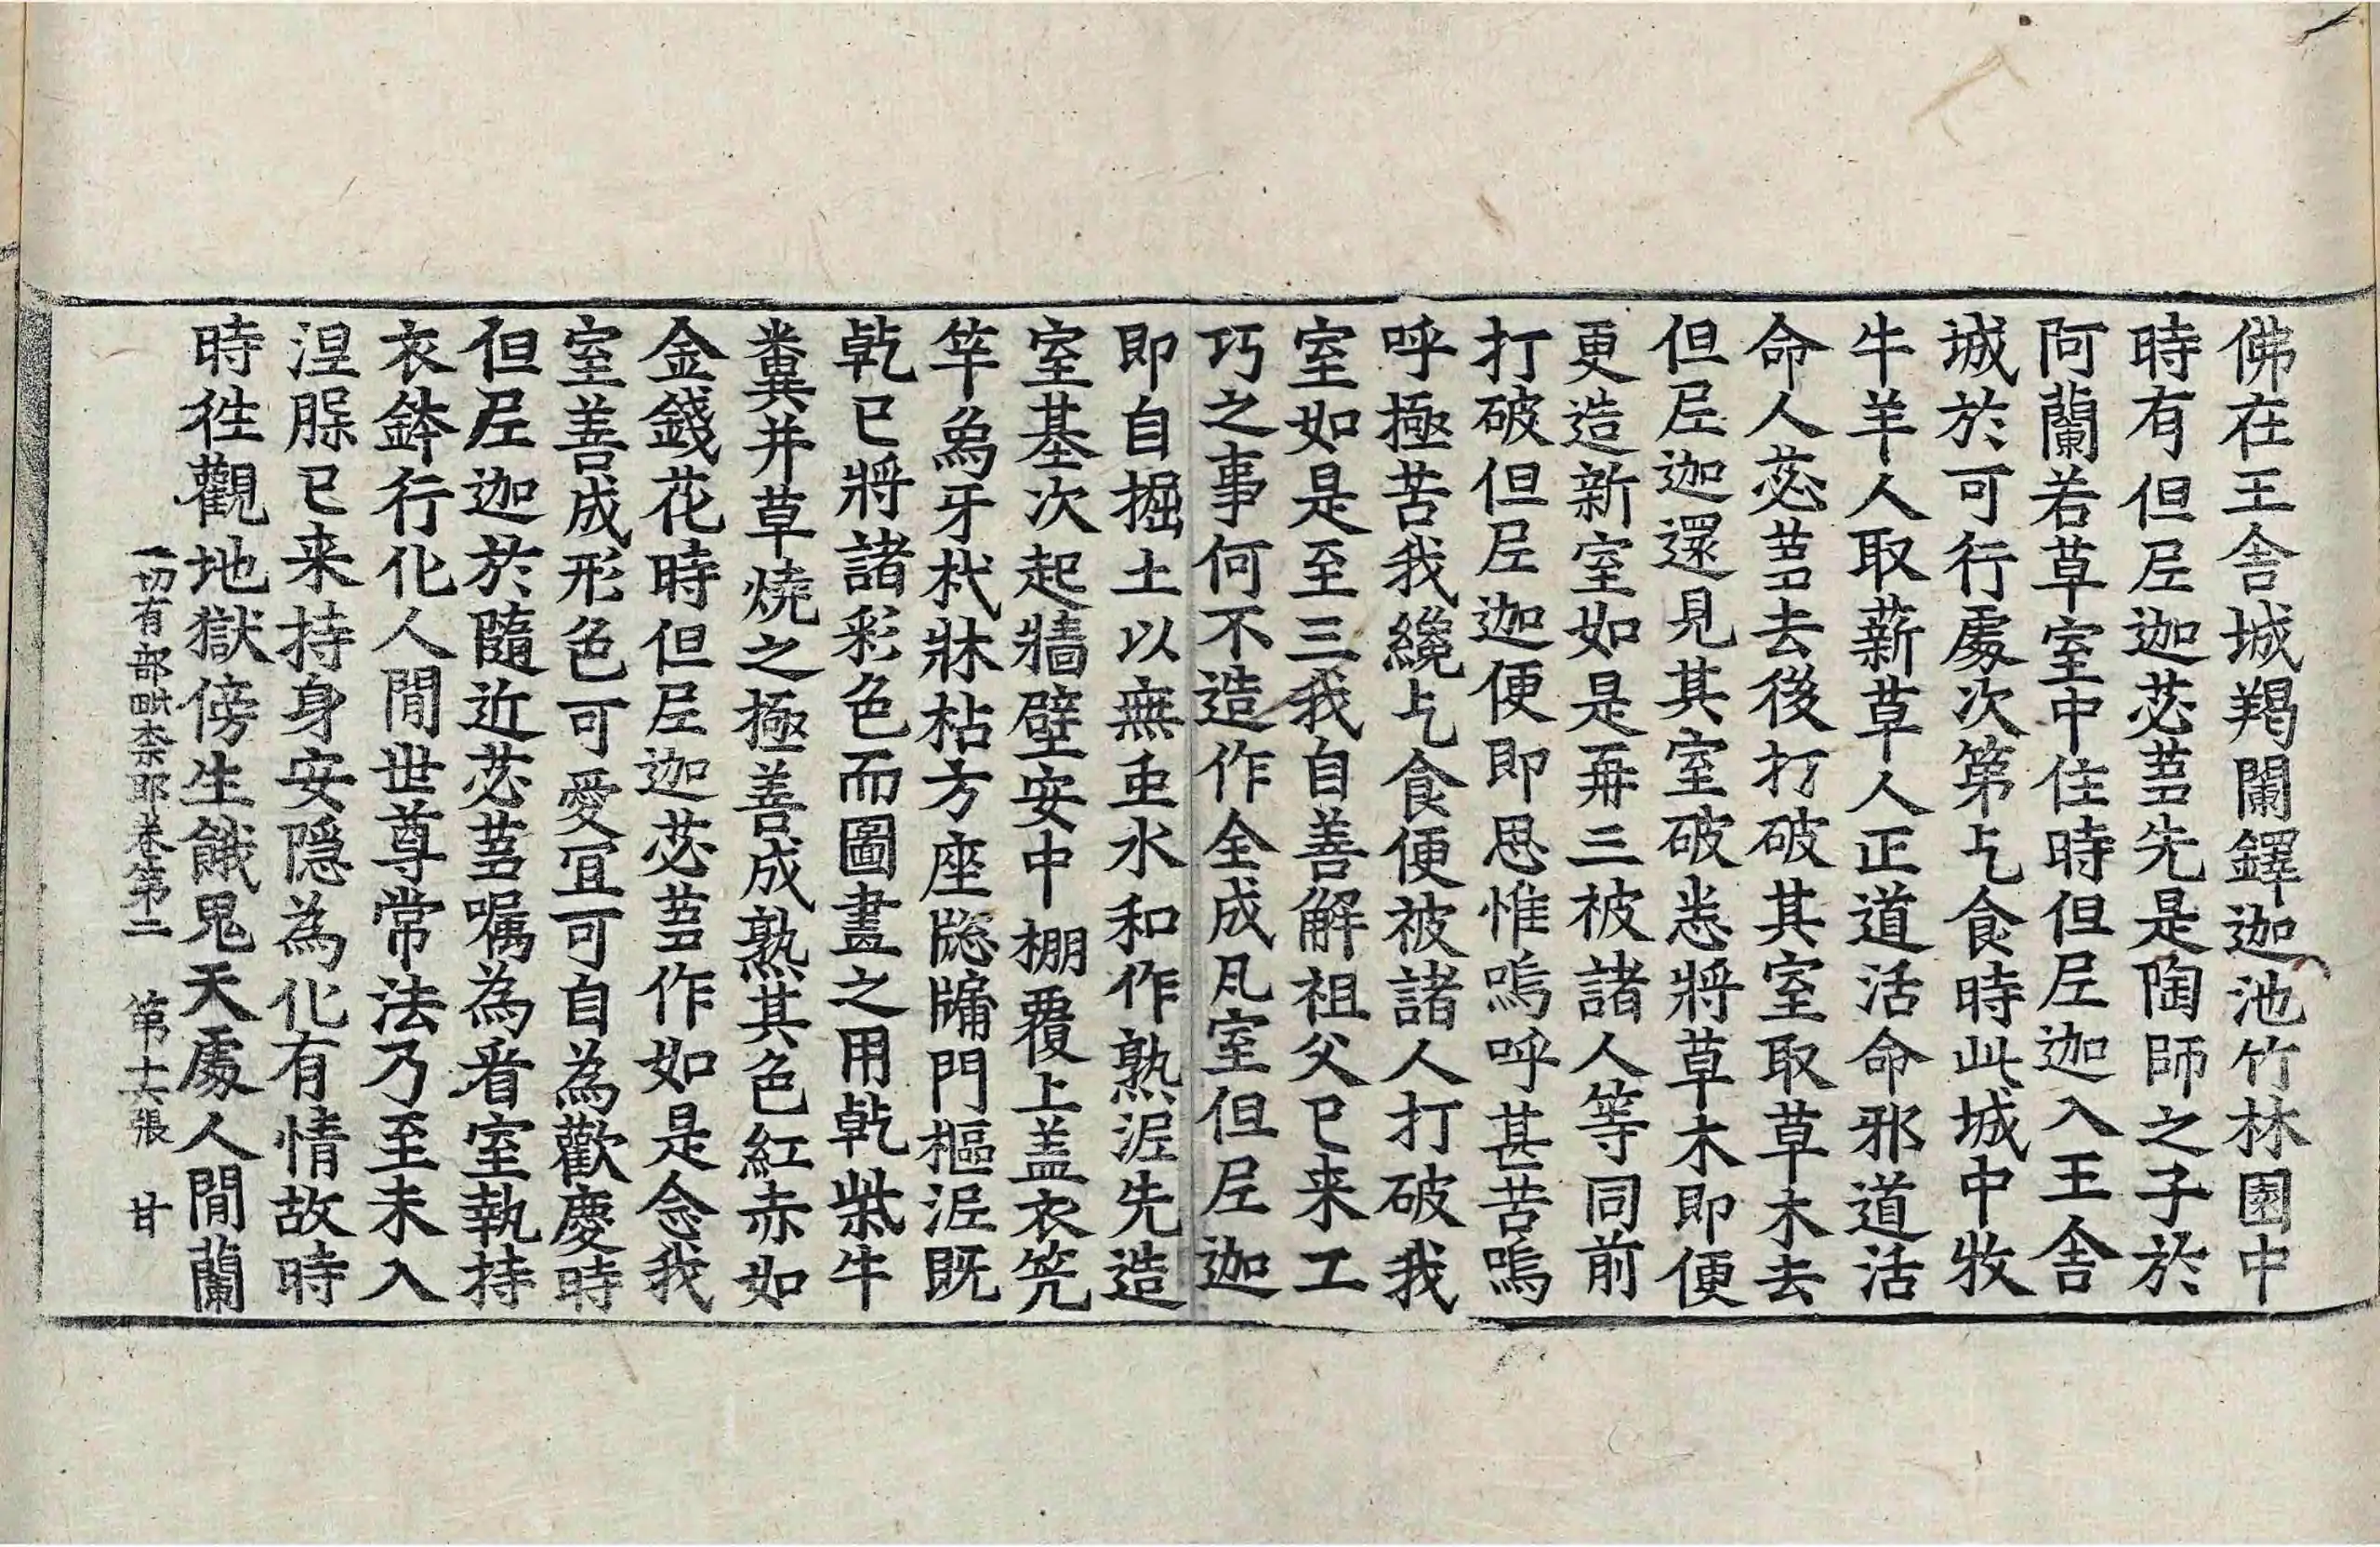 佛在王舍城羯闌鐸迦池竹林園中
時有但𡰱迦苾芻先是陶師之子於
阿蘭若草室中住時但𡰱迦入王舍
城於可行處次第乞食時此城中牧
牛羊人取薪草人正道活命邪道活
命人苾芻去後打破其室取草木去
但𡰱迦還見其室破悉將草木即便
更造新室如是再三被諸人等同前
打破但𡰱迦便即思惟嗚呼甚苦嗚
呼極苦我纔乞食便被諸人打破我
室如是至三我自善解祖父已来工
巧之事何不造作全成凡室但𡰱迦
即自掘土以無虫水和作熟泥先造
室基次起牆壁安中棚覆上盖衣笐
竿象牙杙牀枯方座䆫牖門樞泥既
乾已將諸彩色而圖畫之用乾柴牛
糞并草燒之極善成熟其色紅赤如
金錢花時但𡰱迦苾芻作如是念我
室善成形色可愛宜可自為歡慶時
但𡰱迦於隨近苾芻囑為看室執持
衣鉢行化人間世尊常法乃至未入
涅槃已来持身安隱為化有情故時
時往觀地獄傍生餓鬼天處人間蘭
一切有部毗柰耶卷第二　第十六張　甘